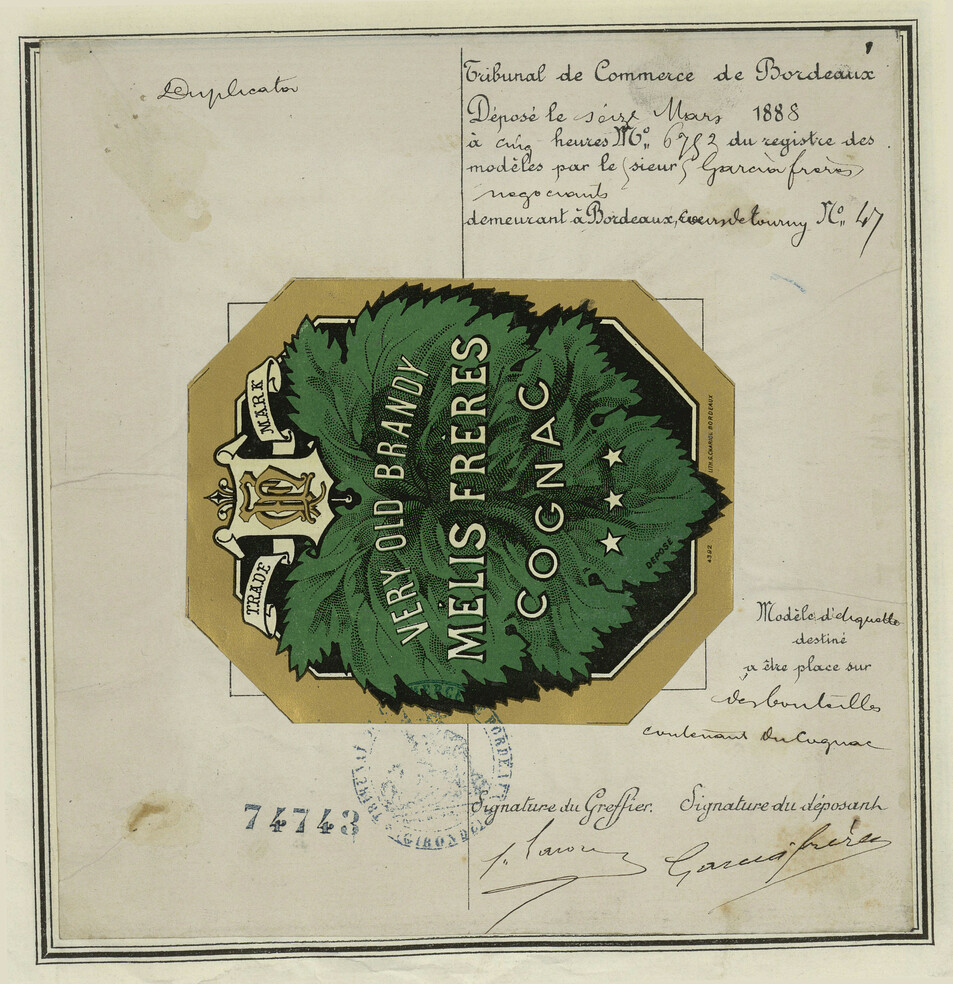 Duplicata
Tribunal de Commerce de Bordeaux
Déposé le seize Mars 1888
à cinq heures No. 6792 du registre des
modèles par le sieur Garcia frères
negociants
demeurant à Bordeaux, cours de tourny No. 47
TRADE MARK
VERY OLD BRANDY
MÉLIS FRÈRES
COGNAC
DÉPOSÉ
4392
LITH. G. CHARIOL BORDEAUX
Modèle d'étiquette
destiné
a être place sur
des bouteilles
contenant du Cognac
BORDEAUX
GIRONDE
74743
Signature du Greffier. Signature du déposant
Garcia frères